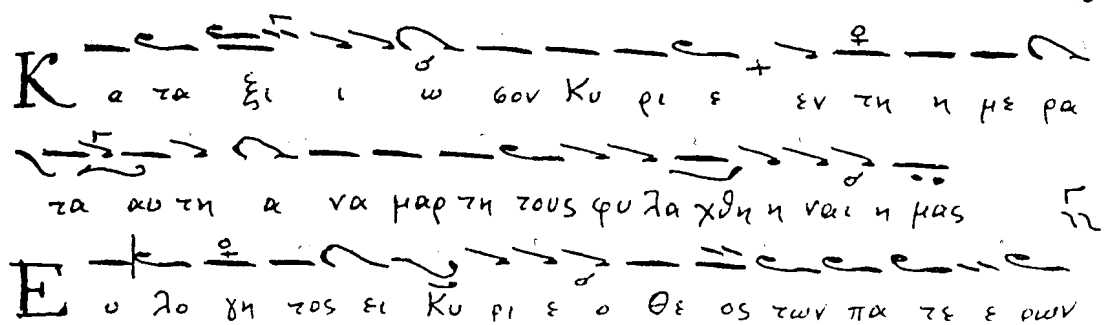 Κ α τα ξι ι ω σον Κυ ρι ε εν τη η με ρα
τα αυ τη α να μαρ τη τους φυ λα χθη η ναι η μας
Ε υ λο γη τος ει Κυ ρι ε ο Θε ος των πα τε ε ρων